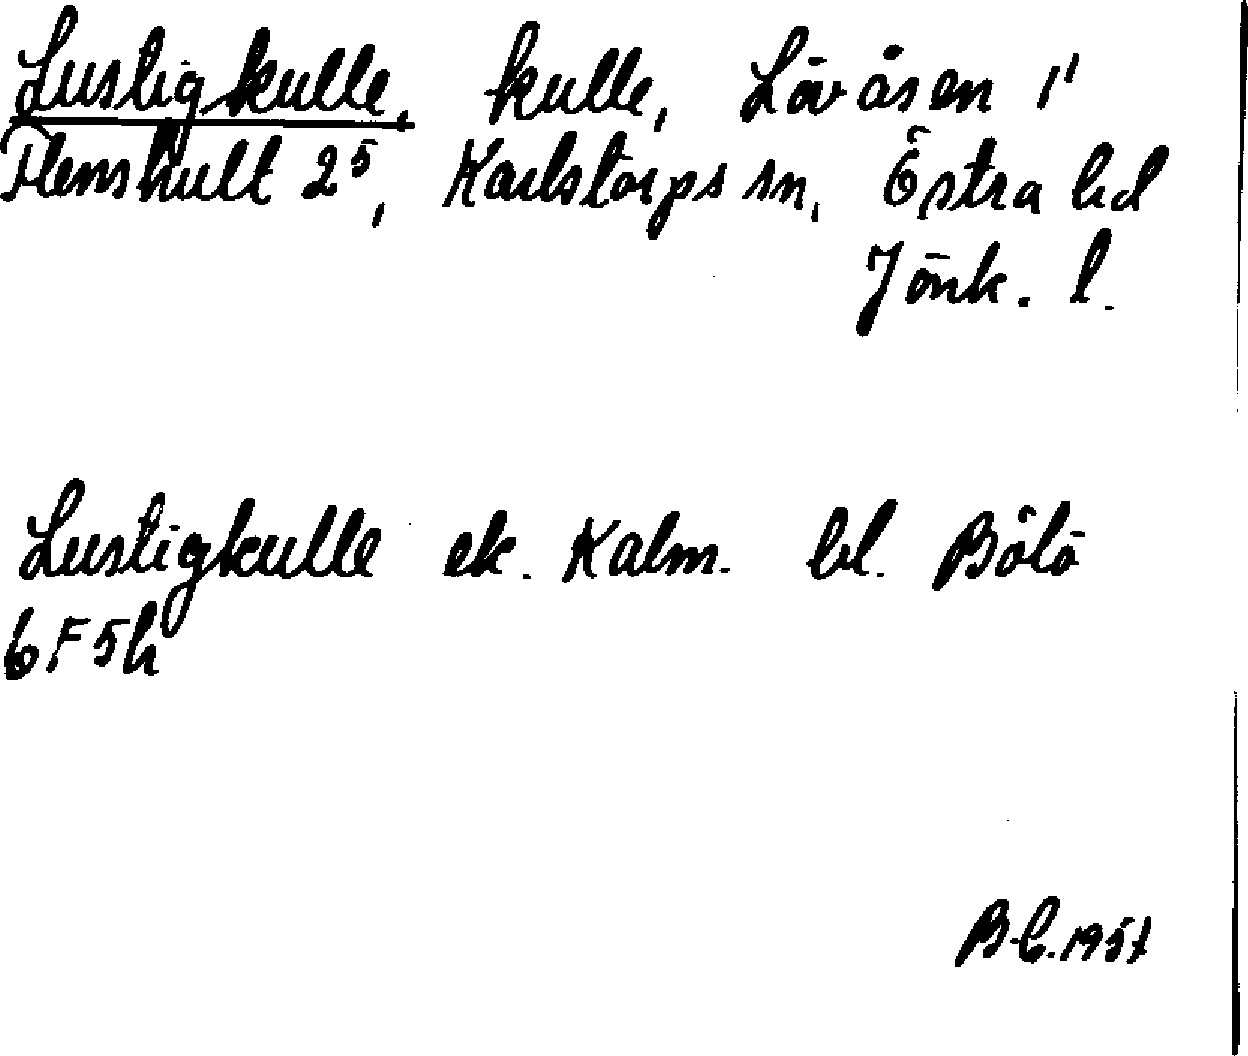 Lustigkulle, kulle, Lövåsen 1¹
Flenshult 2⁵, Karlstorps sn, Östra hd
Jönk. l.
Lustigkulle ek. Kalm. bl. Bölö
6F5h